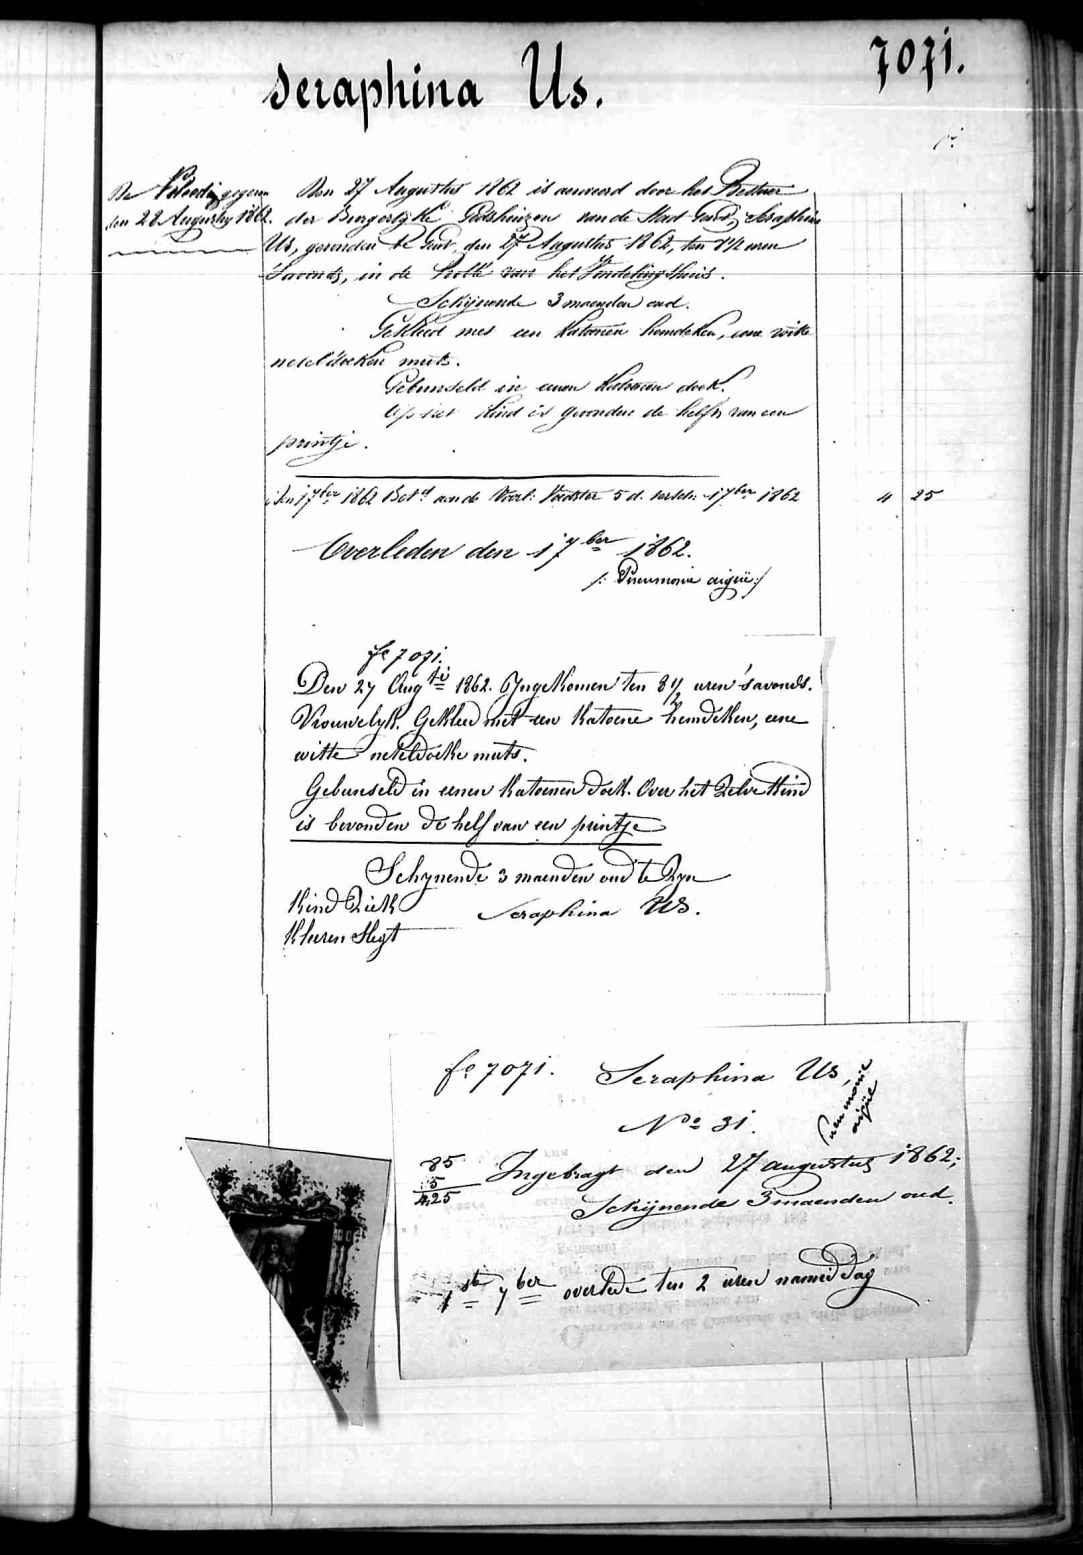 Seraphina Us.
7071.
De Voleedig gegeven
den 28 Augustus 1862.
Den 27 Augustus 1862 is aenveerd door het Bestuur
der Burgerlyke Godshuizen van de Stad Gend, Seraphina
Us, gevonden te Gent, den 27 Augustus 1862, ten 8 1/2 uren
s'avonds, in de rolle voor het Vondelingshuis.
Schijnende 3 maenden oud.
Gekleed met een katoenen hemdeken, eene witte
neteldoeken muts.
Gebunseld in eenen katoenen doek.
Op het kind is gevonden de helft van een
printje.
Den 1 7ber 1862 Betd aen de Voorl: Voedster 5 d. 1 7ber 1862
4 25
Overleden den 1 7ber 1862.
/: Pneumonie aigüe :/
fo 7071.
Den 27 Augti 1862. Ingekomen ten 8 1/2 uren 's avonds.
Vrouwelyk. Gekleed met een katoene hemdeken, eene
witte neteldoeke muts.
Gebunseld in eenen katoenen doek. Over het zelve kind
is bevonden de helf van een printje
Schynende 3 maenden oud te zyn
Kind Ziek
Seraphina Us.
Kleeren slegt
fo 7071. Seraphina Us,
Pneumonie
aigüe
No 31.
85
5
4,25
Ingebragt den 27 augustus 1862;
Schijnende 3 maenden oud.
1ste 7ber overlede ten 2 uren namiddag